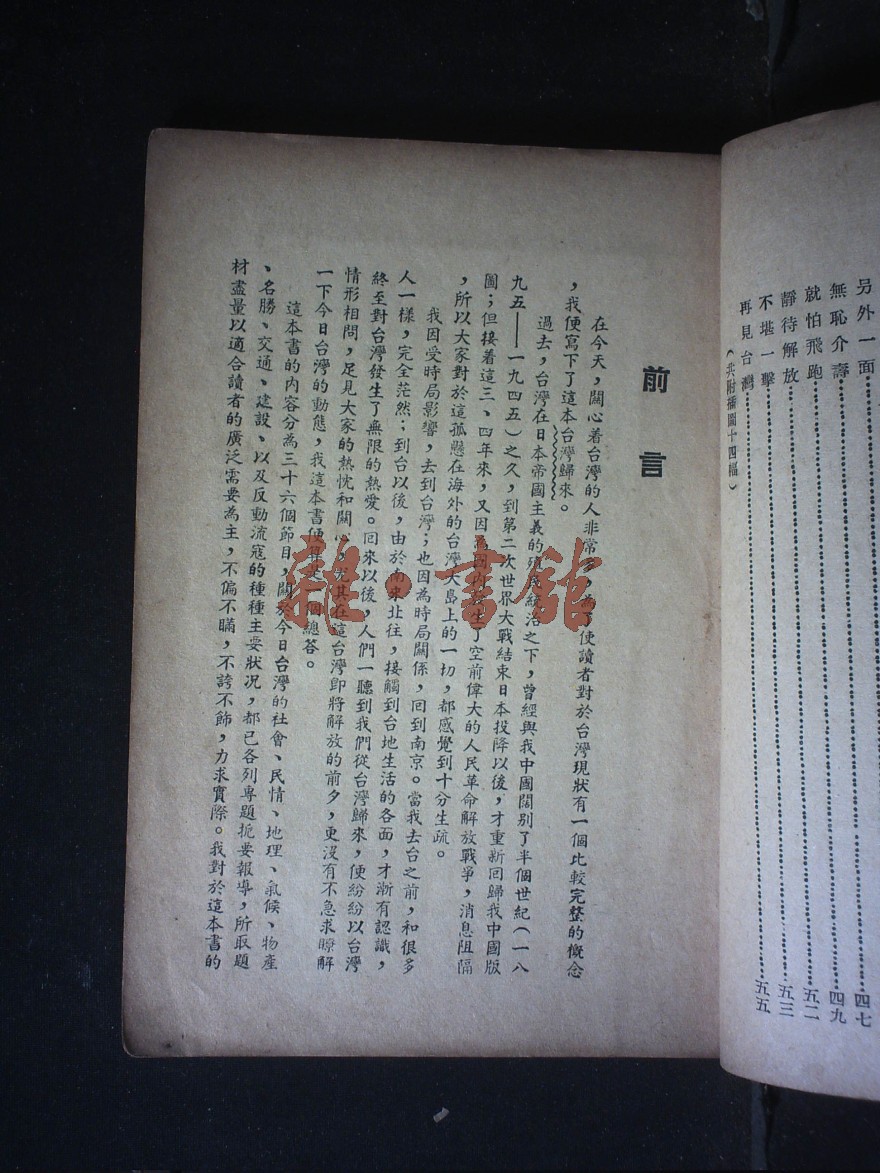 另外一面⋯⋯四七
無恥介壽⋯⋯四九
就怕飛跑⋯⋯五二
靜待解放⋯⋯五三
不堪一擊⋯⋯五五
再見台灣⋯⋯
（共附插圖十四幅）
前言
在今天，關心着台灣的人非常多，為了使讀者對於台灣現狀有一個比較完整的概念
，我便寫下了這本台灣歸來。
過去，台灣在日本帝國主義的殖民統治之下，曾經與我中國闊別了半個世紀（一八
九五——一九四五）之久，到第二次世界大戰結束日本投降以後，才重新回歸我中國版
圖；但接着這三、四年來，又因為國內發生了空前偉大的人民革命解放戰爭，消息阻隔
，所以大家對於這孤懸在海外的台灣大島上的一切，都感覺到十分生疏。
我因受時局影響，去到台灣；也因為時局關係，回到南京。當我去台之前，和很多
人一樣，完全茫然；到台以後，由於南來北往，接觸到台地生活的各面，才漸有認識，
終至對台灣發生了無限的熱愛。回來以後，人們一聽到我們從台灣歸來，便紛紛以台灣
情形相問，足見大家的熱忱和關心，尤其在這台灣即將解放的前夕，更沒有不急求瞭解
一下今日台灣的動態，我這本書便算是一個總答。
這本書的內容分為三十六個節目，關於今日台灣的社會、民情、地理、氣候、物產
、名勝、交通、建設、以及反動流寇的種種主要狀況，都已各列專題扼要報導，所取題
材盡量以適合讀者的廣泛需要為主，不偏不瞞，不誇不飾，力求實際。我對於這本書的
雜·書館